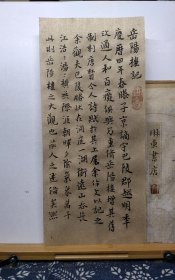 岳陽樓記
慶曆四年春滕子京謫守巴陵郡越明年
政通人和百廢俱興乃重修岳陽樓增其舊
制刻唐賢今人詩賦於其上屬余作文以記之
余觀夫巴陵勝狀在洞庭一湖銜遠山吞長
江浩浩湯湯橫無際涯朝暉夕陰氣象萬千
此則岳陽樓之大觀也前人之述備矣然
東書店